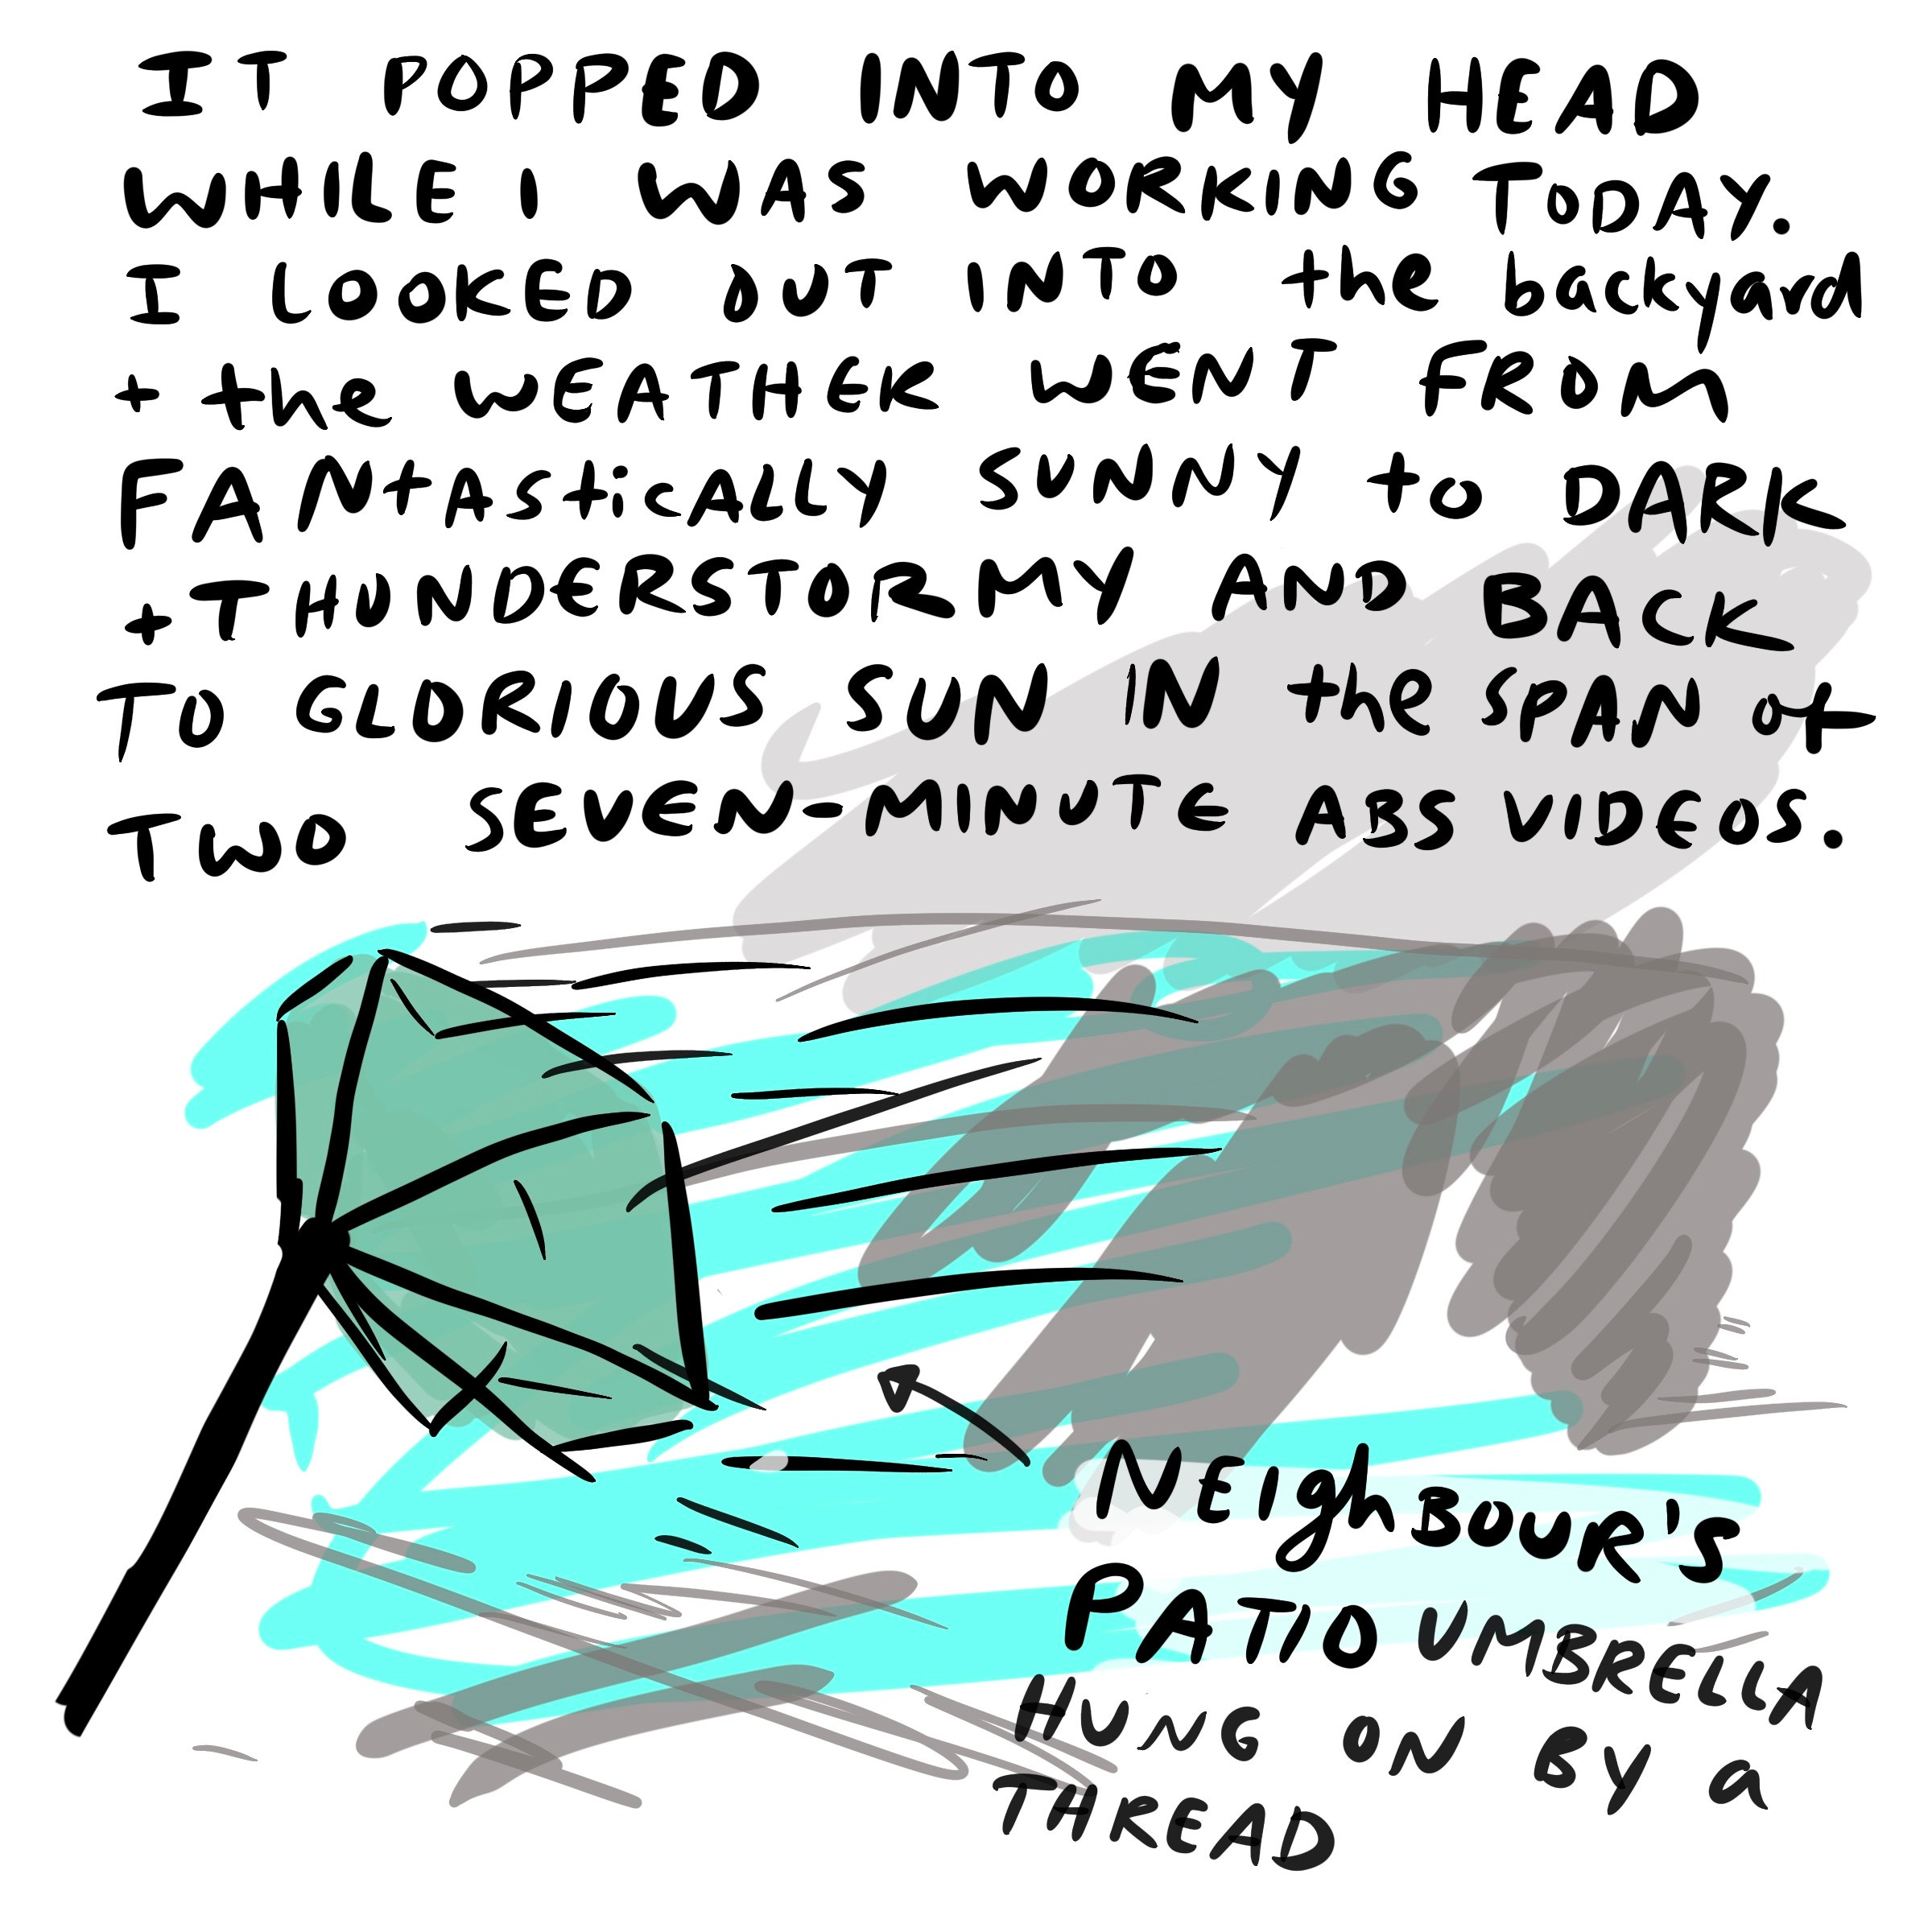 IT POPPED INTO MY HEAD
WHILE I WAS WORKING TODAY.
I LOOKED OUT INTO the backyard
+ the WEATHER WENT FROM
FANtAStiCALLY SUNNY to DARK
+ THUNDERSTORMY AND BACK
TO GLORIOUS SUN IN the SPAN OF
TWO SEVEN-MINUTE ABS VIDEOS.
NEIghBOUR'S
PATIO UMBRELLA
HUNG ON BY a
THREAD